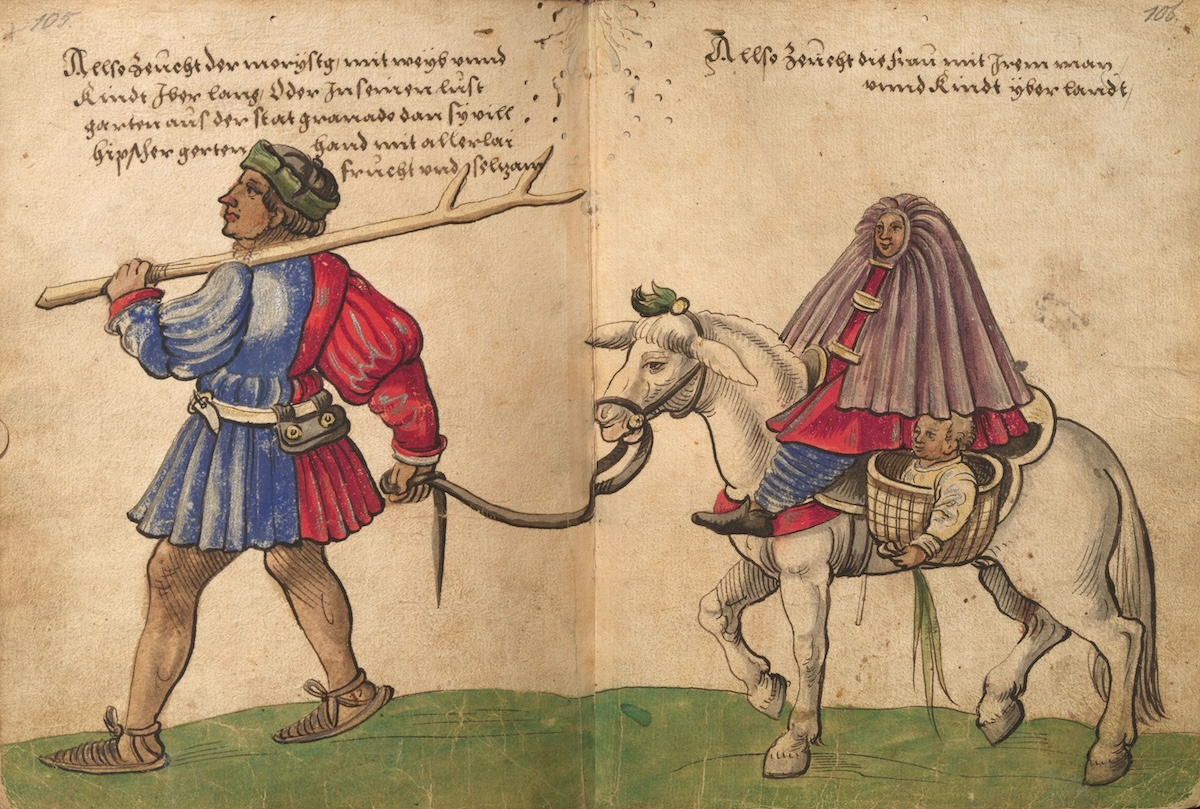 105.
Allso zeücht der moryskg, mit weyb vnnd
Kindt Jber lang, Oder Jn seinen lust
garten aus der stat granado dan sy vill
hipscher gerten hand mit allerlai
frücht vnd selzam
106.
Allso zeücht die fraü mit Jrem man,
vnnd Kindt yber landt,